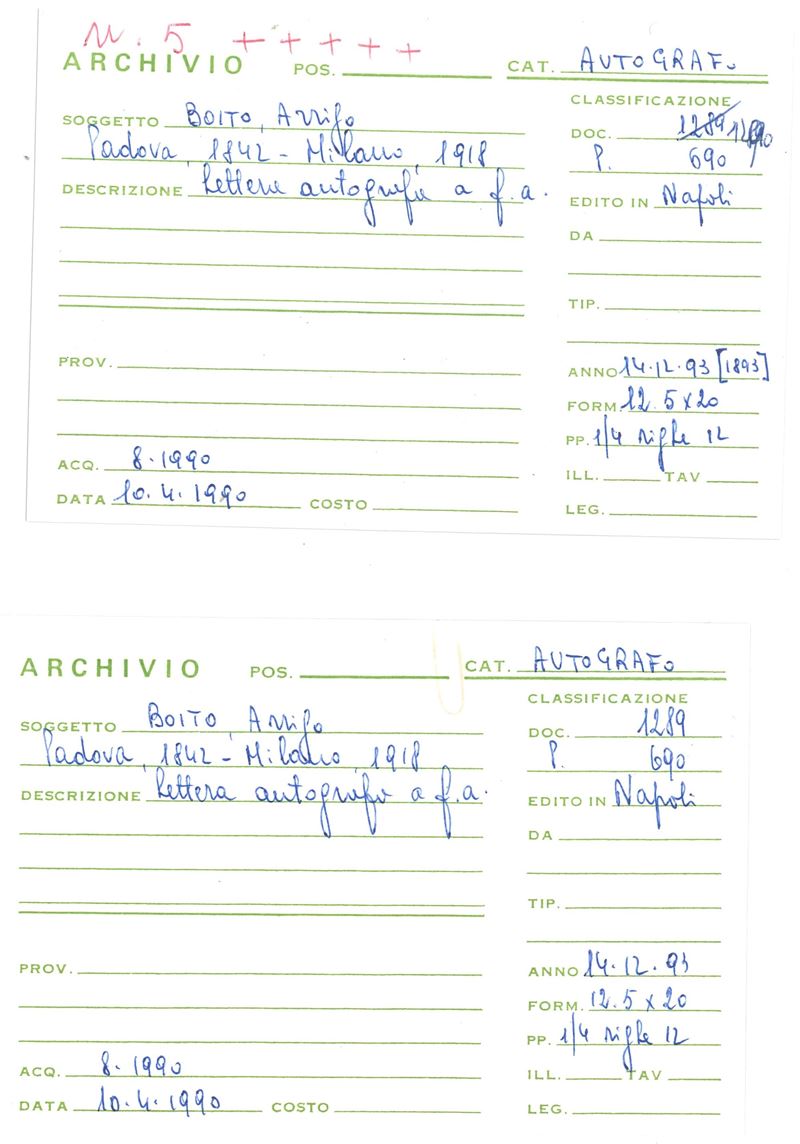 N. 5 + + + + +
ARCHIVIO POS. CAT. AUTOGRAFO
CLASSIFICAZIONE
SOGGETTO BOITO, Arrigo DOC. 1289 1290
Padova, 1842 - Milano, 1918 P. 690
DESCRIZIONE Lettera autografa a f.a. EDITO IN Napoli
DA
TIP.
PROV. ANNO 14.12.93 [1893]
FORM. 12.5 x 20
PP. 1/4 righe 12
ACQ. 8.1990 ILL. TAV
DATA 10.4.1990 COSTO LEG.
ARCHIVIO POS. CAT. AUTOGRAFO
CLASSIFICAZIONE
SOGGETTO BOITO, Arrigo DOC. 1289
Padova, 1842 - Milano, 1918 P. 690
DESCRIZIONE Lettera autografa a f.a. EDITO IN Napoli
DA
TIP.
PROV. ANNO 14.12.93
FORM. 12.5 x 20
PP. 1/4 righe 12
ACQ. 8.1990 ILL. TAV
DATA 10.4.1990 COSTO LEG.